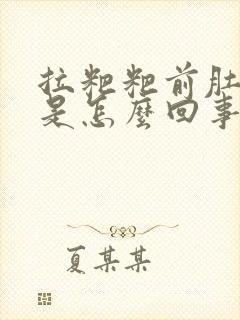 拉粑粑前肚
是怎麼回事
夏某某